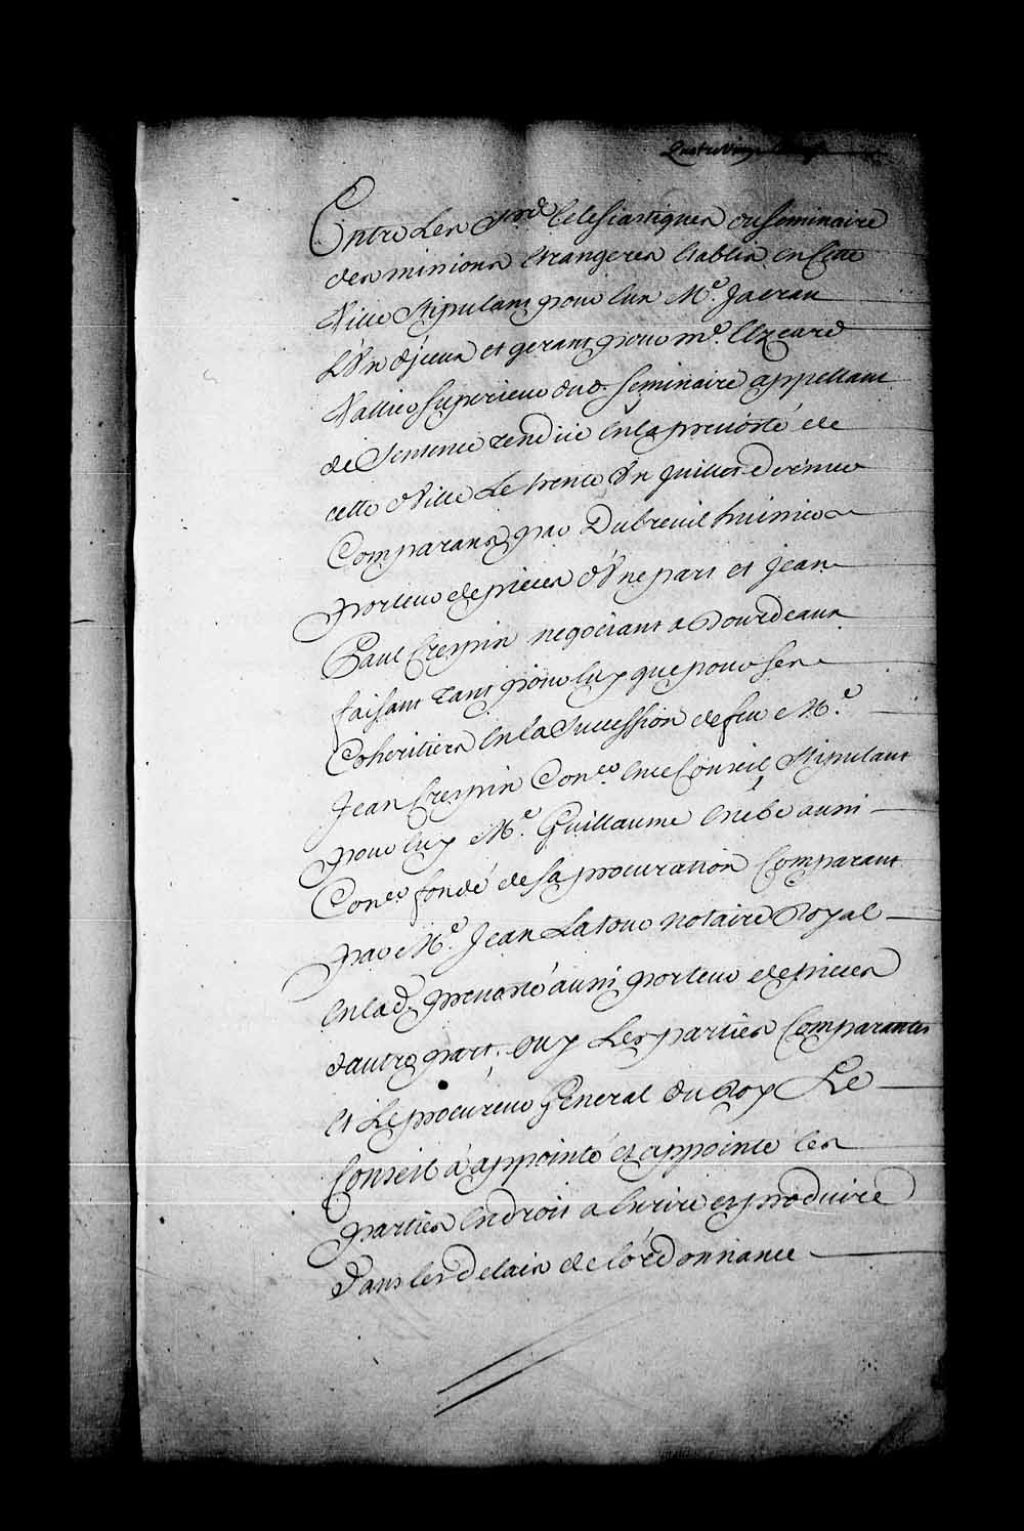 Quatre Vingt
Entre Les Srs. Eclesiastiques du Seminaire
des missions Etrangeres Etablis en Cette
Ville Stipulant pour Eux Me. Jacrau
L'Vn d'jceux et gerant pour me.
Vallier Superieur dud. Seminaire appellant
de Sentence rendüe En la prevôsté de
cette Ville Le trente Vn Juillet dernier
Comparans par Dubreuil huissier
porteur de pieces d'Vne part et Jean
Paul Crespin negociant a Bourdeaux
faisant tant pour luy que pour ses
Coheritiers En la Succession de feu Me.
Jean Crespin Coner. En ce Conseil Stipulant
pour luy Me. Guillaume Estebe aussi
Coner. fondé de Sa procuration Comparant
par Me. Jean Latour notaire Royal
En lad. prevosté aussi porteur de pieces
d'autre part. Ouy Les parties Comparantes
Et Le procureur General du Roy Le
Conseil à appointé et appointe les
parties En droit a Ecrire et produire
dans les delais de l'ordonnance